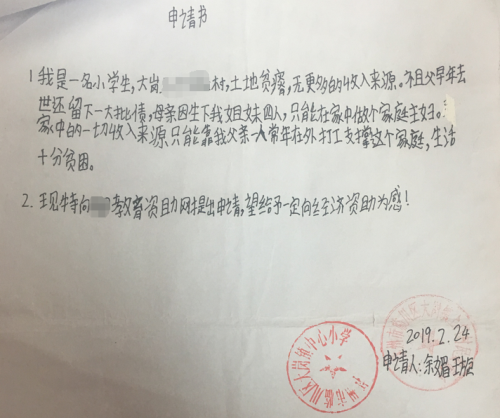 申请书
1.我是一名小学生,大岗村,土地贫瘠,无更多的收入来源。祖父早年去
世还留下一大批债,母亲因生下我姐妹四人,只能在家中做个家庭主妇。
家中的一切收入来源只能靠我父亲一人常年在外打工支撑这个家庭,生活
十分贫困。
2.现特向教育资助网提出申请,望给予一定的经济资助为感!
2019.2.24
申请人:余媚
临川区大岗镇中心小学